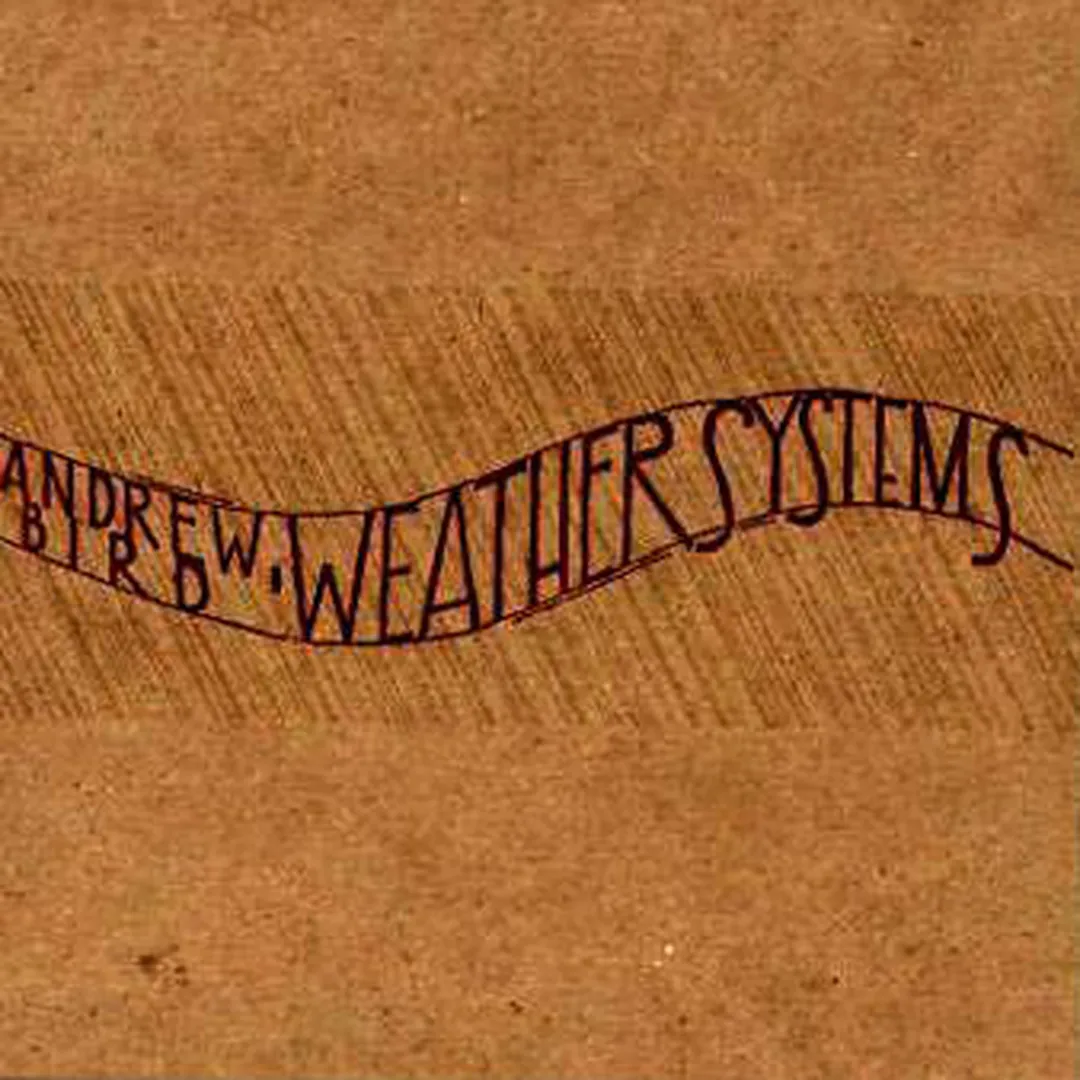 ANDREW
BIRD
· WEATHER SYSTEMS